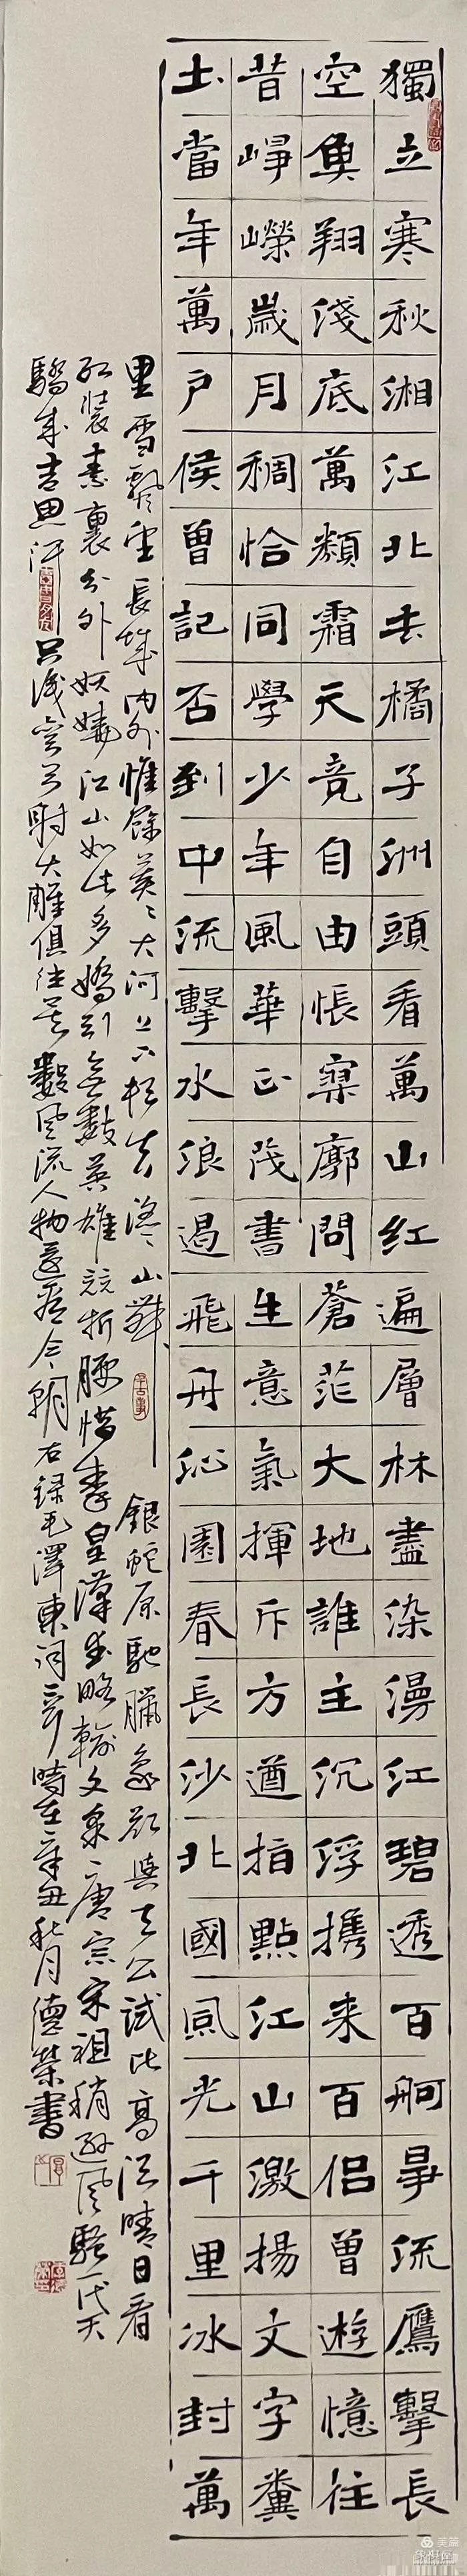 獨立寒秋湘江北去橘子洲頭看萬山紅遍層林盡染漫江碧透百舸爭流鷹擊長
空魚翔淺底萬類霜天竟自由悵寥廓問蒼茫大地誰主沉浮携来百侣曾遊憶往
昔崢嶸歲月稠恰同學少年風華正茂書生意氣揮斥方遒指點江山激揚文字糞
土當年萬户侯曾記否到中流擊水浪遏飛舟沁園春長沙北國風光千里冰封萬
里雪飄望長城內外惟餘莽〻大河上下頓失滔〻山舞銀蛇原馳臘象欲與天公試比高須晴日看
紅裝素裹分外妖嬈江山如此多嬌引無數英雄競折腰惜秦皇漢武略輸文采唐宗宋祖稍遜風騷一代天
驕成吉思汗只識彎弓射大雕俱往矣數風流人物還看今朝右錄毛澤東词二首時在辛丑秋月德榮書
美篇